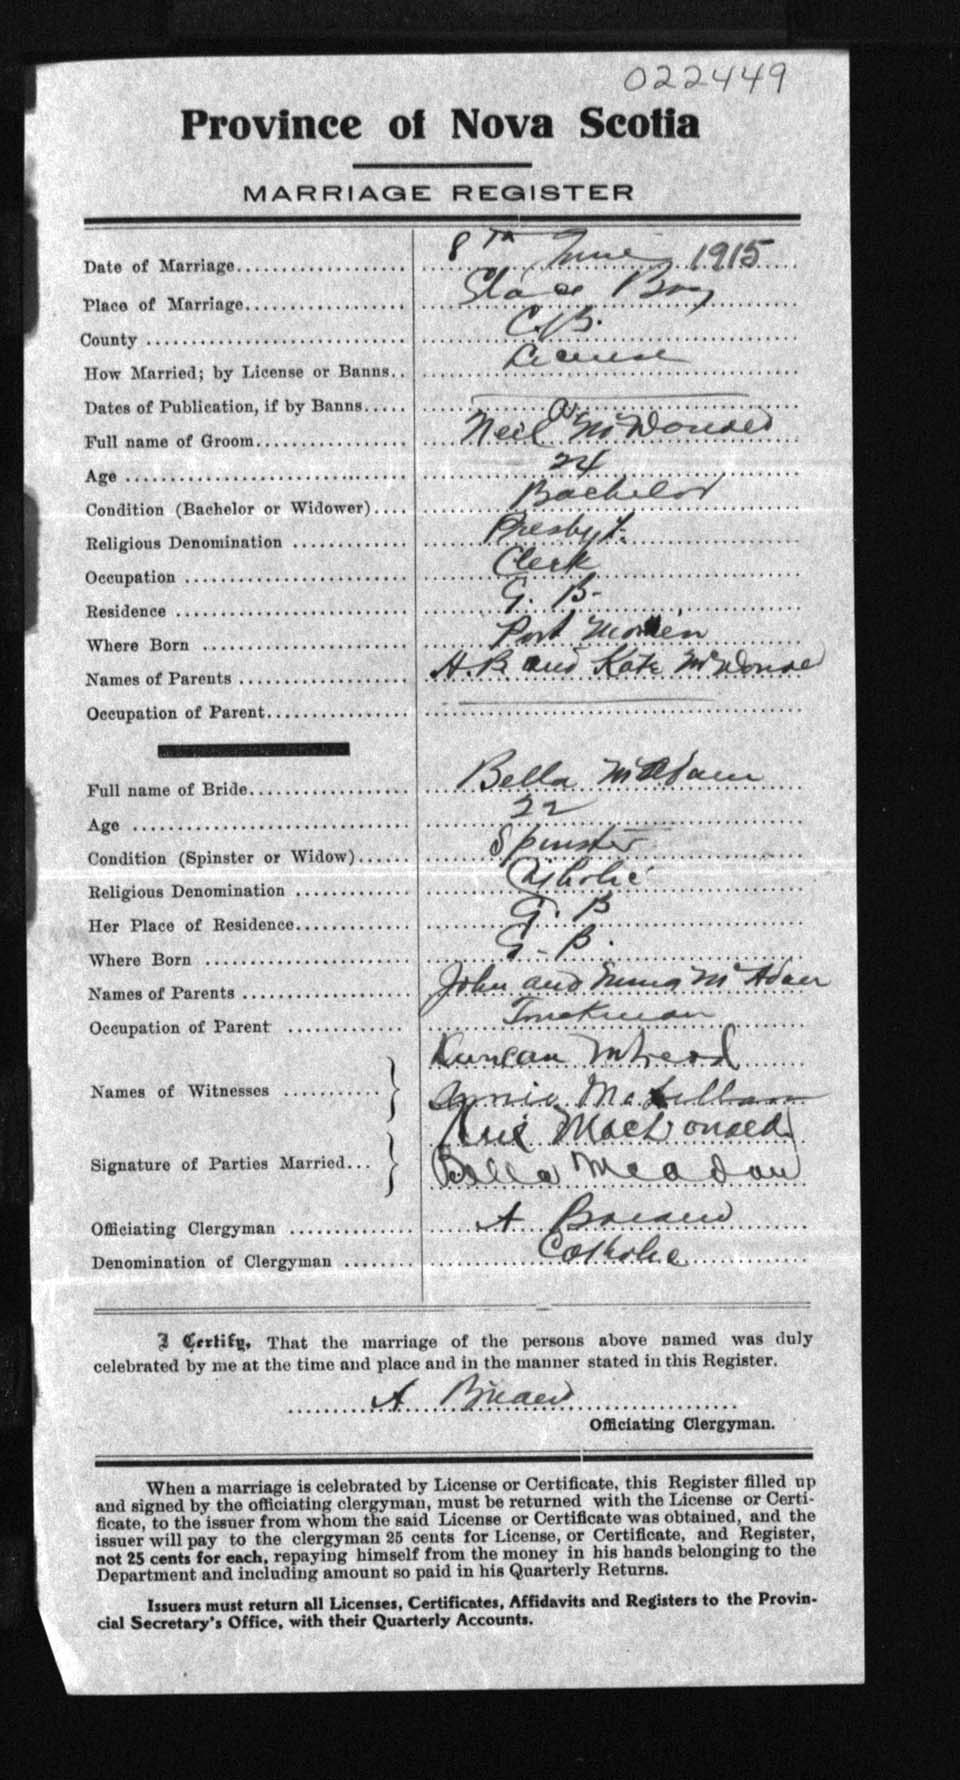 022449
Province of Nova Scotia
MARRIAGE REGISTER
Date of Marriage 8TH June 1915
Place of Marriage Glace Bay
County C.B.
How Married; by License or Banns License
Dates of Publication, if by Banns
Full name of Groom Neil McDonald
Age 24
Condition (Bachelor or Widower) Bachelor
Religious Denomination Presbyt.
Occupation Clerk
Residence G. B.
Where Born Port Morien
Names of Parents A.B. and Kate McDonald
Occupation of Parent
Full name of Bride Bella McAdam
Age 22
Condition (Spinster or Widow) Spinster
Religious Denomination Catholic
Her Place of Residence G. B
Where Born G. B.
Names of Parents John and McAdam
Occupation of Parent Truckman
Duncan McLeod
Names of Witnesses
Annie McLellan
Neil MacDonald
Signature of Parties Married
Bella McAdam
Officiating Clergyman A
Denomination of Clergyman Catholic
I Certify, That the marriage of the persons above named was duly
celebrated by me at the time and place and in the manner stated in this Register.
A
Officiating Clergyman.
When a marriage is celebrated by License or Certificate, this Register filled up
and signed by the officiating clergyman, must be returned with the License or Certi-
ficate, to the issuer from whom the said License or Certificate was obtained, and the
issuer will pay to the clergyman 25 cents for License, or Certificate, and Register,
not 25 cents for each, repaying himself from the money in his hands belonging to the
Department and including amount so paid in his Quarterly Returns.
Issuers must return all Licenses, Certificates, Affidavits and Registers to the Provin-
cial Secretary's Office, with their Quarterly Accounts.